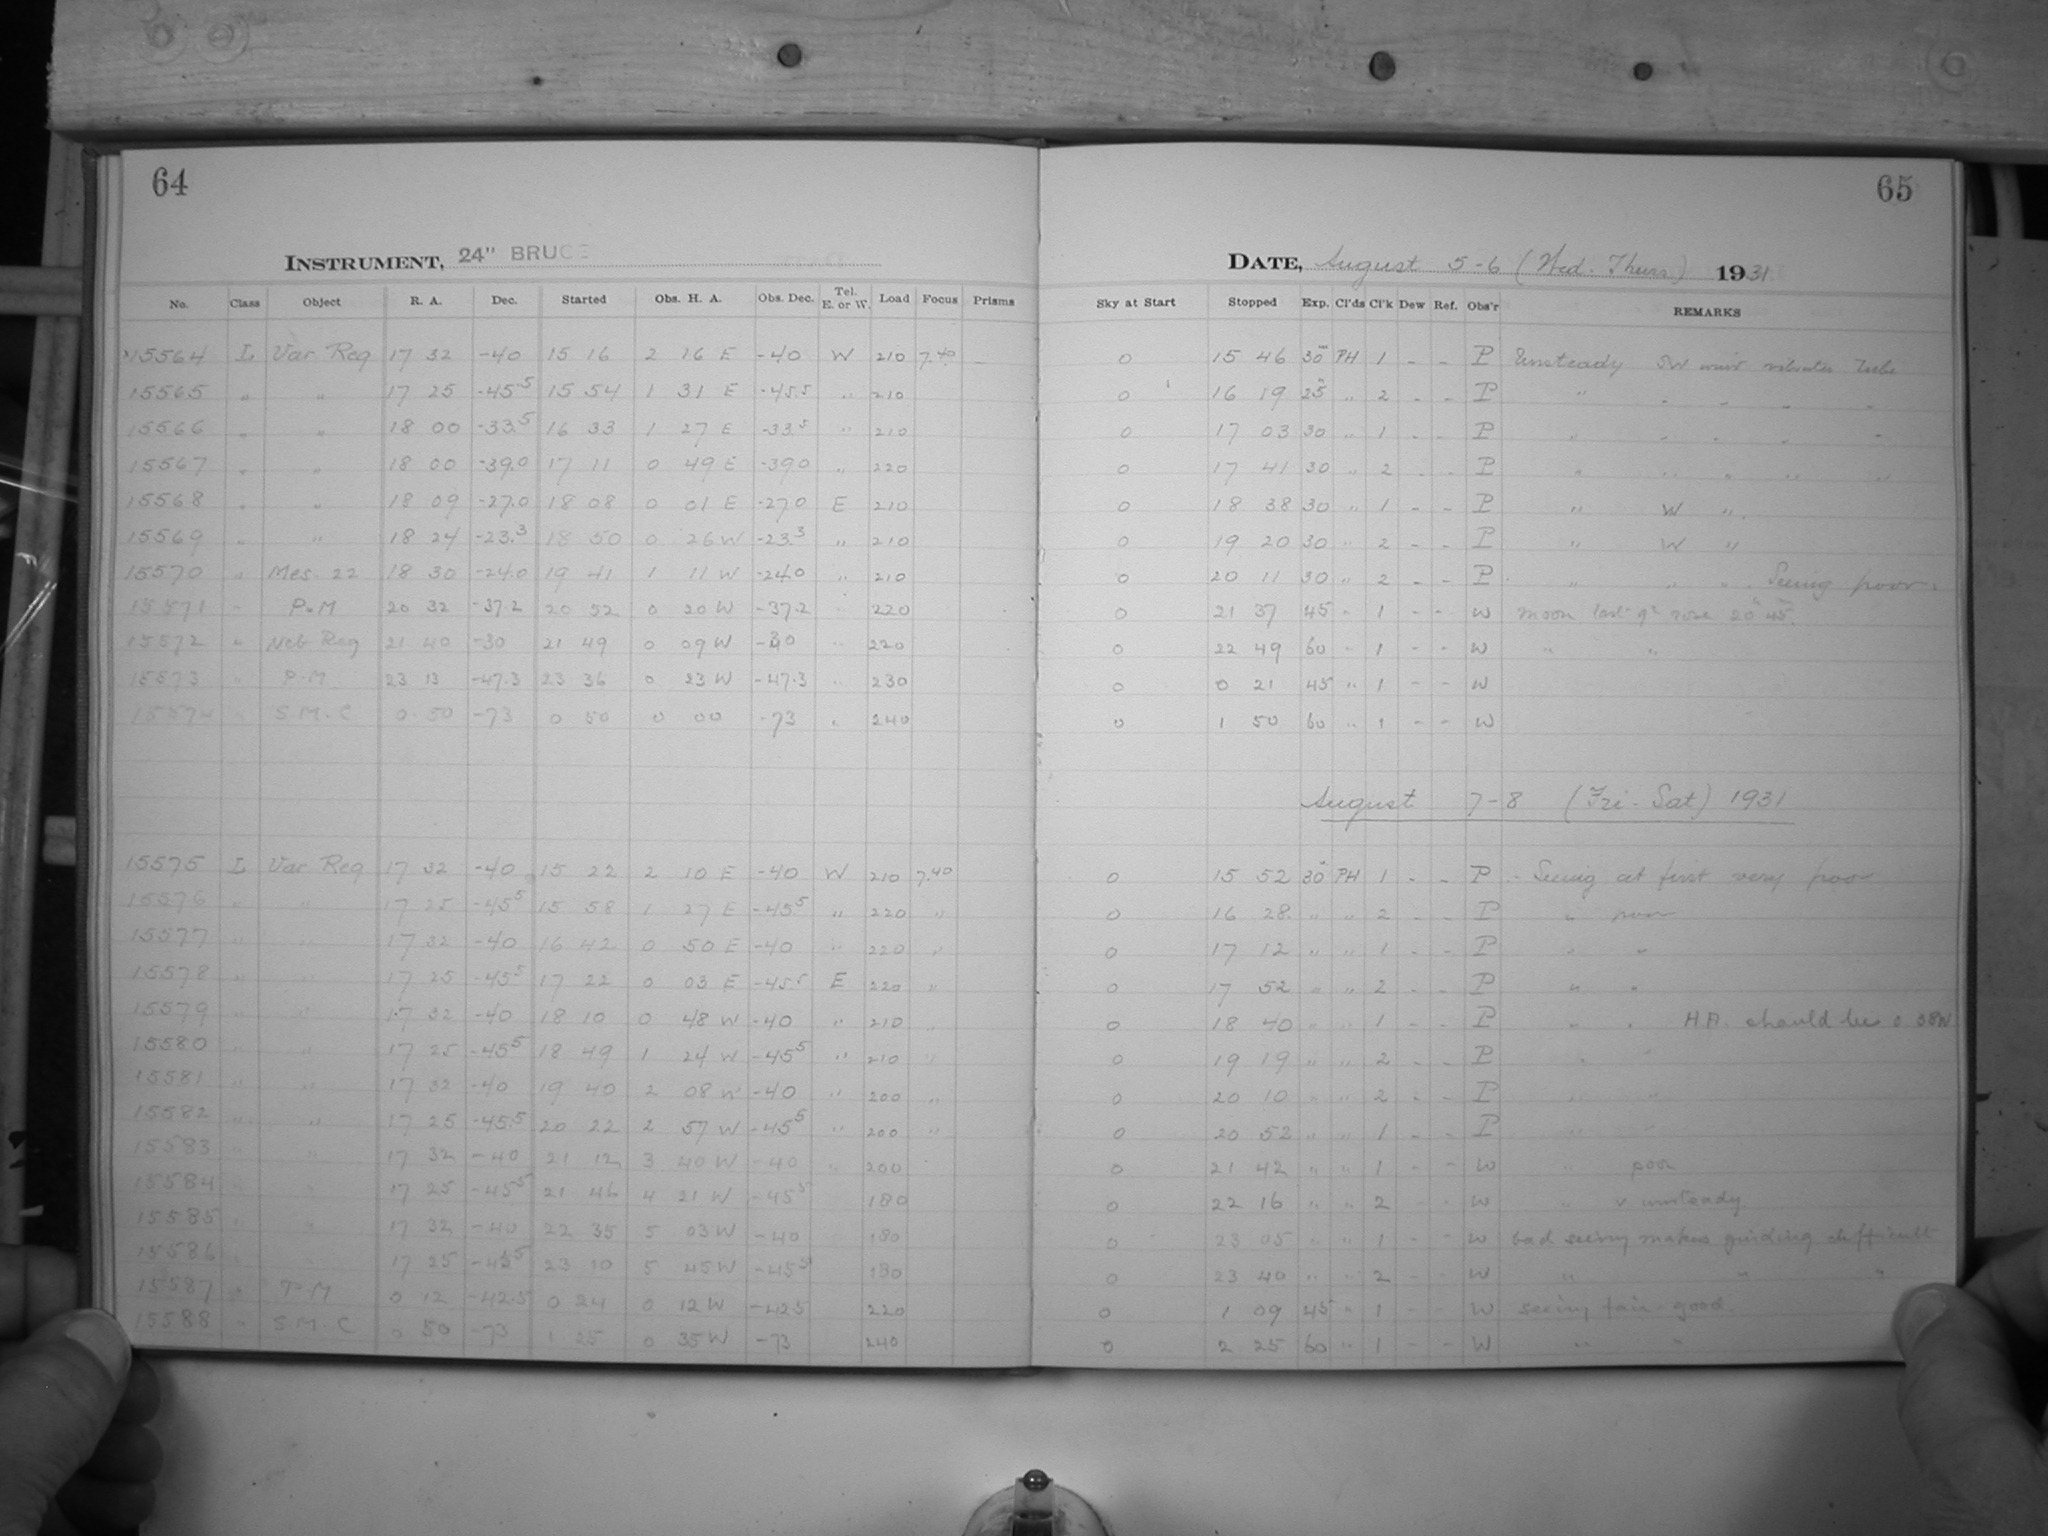 64
65
INSTRUMENT, 24" BRUCE
DATE, August 5-6 (Wed. Thurs.) 1931
No. Class Object R. A. Dec. Started Obs. H. A. Obs. Dec. Tel. E. or W. Load Focus Prisms Sky at Start Stopped Exp. Cl'ds Cl'k Dew Ref. Obs'r REMARKS
15564 L Var Reg 17 32 -40 15 16 2 16 E -40 W 210 7.40 - 0 15 46 30m PH 1 - - P Unsteady SW wind vibrates Tube
15565 " " 17 25 -45.5 15 54 1 31 E -45.5 " 210 0 16 19 25 " 2 - - P " " " " "
15566 " " 18 00 -33.5 16 33 1 27 E -33.5 " 210 0 17 03 30 " 1 - - P " " " " "
15567 " " 18 00 -39.0 17 11 0 49 E -39.0 " 220 0 17 41 30 " 2 - - P " " " " "
15568 " " 18 09 -27.0 18 08 0 01 E -27.0 E 210 0 18 38 30 " 1 - - P " W "
15569 " " 18 24 -23.3 18 50 0 26 W -23.3 " 210 0 19 20 30 " 2 - - P " W "
15570 " Mes. 22 18 30 -24.0 19 41 1 11 W -24.0 " 210 0 20 11 30 " 2 - - P " " " Seeing poor.
15571 " P.M 20 32 -37.2 20 52 0 20 W -37.2 " 220 0 21 37 45 " 1 - - W moon last qr rose 20 45.
15572 " Neb Reg 21 40 -30 21 49 0 09 W -30 " 220 0 22 49 60 " 1 - - W " "
15573 " P.M 23 13 -47.3 23 36 0 23 W -47.3 " 230 0 0 21 45 " 1 - - W
15574 " S.M.C 0 50 -73 0 50 0 00 -73 " 240 0 1 50 60 " 1 - - W
August 7-8 (Fri-Sat) 1931
15575 L Var Reg 17 32 -40 15 22 2 10 E -40 W 210 7.40 0 15 52 30 PH 1 - - P - Seeing at first very poor
15576 " " 17 25 -45.5 15 58 1 27 E -45.5 " 220 " 0 16 28 " " 2 - - P " poor
15577 " " 17 32 -40 16 42 0 50 E -40 " 220 " 0 17 12 " " 1 - - P " "
15578 " " 17 25 -45.5 17 22 0 03 E -45.5 E 220 " 0 17 52 " " 2 - - P " "
15579 " " 17 32 -40 18 10 0 48 W -40 " 210 " 0 18 40 " " 1 - - P " " H.A. should be 0 38W
15580 " " 17 25 -45.5 18 49 1 24 W -45.5 " 210 " 0 19 19 " " 2 - - P " "
15581 " " 17 32 -40 19 40 2 08 W -40 " 200 " 0 20 10 " " 2 - - P " "
15582 " " 17 25 -45.5 20 22 2 57 W -45.5 " 200 " 0 20 52 " " 1 - - P "
15583 " " 17 32 -40 21 12 3 40 W -40 " 200 0 21 42 " " 1 - - W " poor
15584 " " 17 25 -45.5 21 46 4 21 W -45.5 180 0 22 16 " " 2 - - W " v unsteady
15585 " " 17 32 -40 22 35 5 03 W -40 180 0 23 05 " " 1 - - W bad seeing makes guiding difficult
15586 " " 17 25 -45.5 23 10 5 45 W -45.5 180 0 23 40 " " 2 - - W " " "
15587 " P.M 0 12 -42.5 0 24 0 12 W -42.5 220 0 1 09 45 " 1 - - W seeing fair-good.
15588 " S.M.C 0 50 -73 1 25 0 35 W -73 240 0 2 25 60 " 1 - - W " "